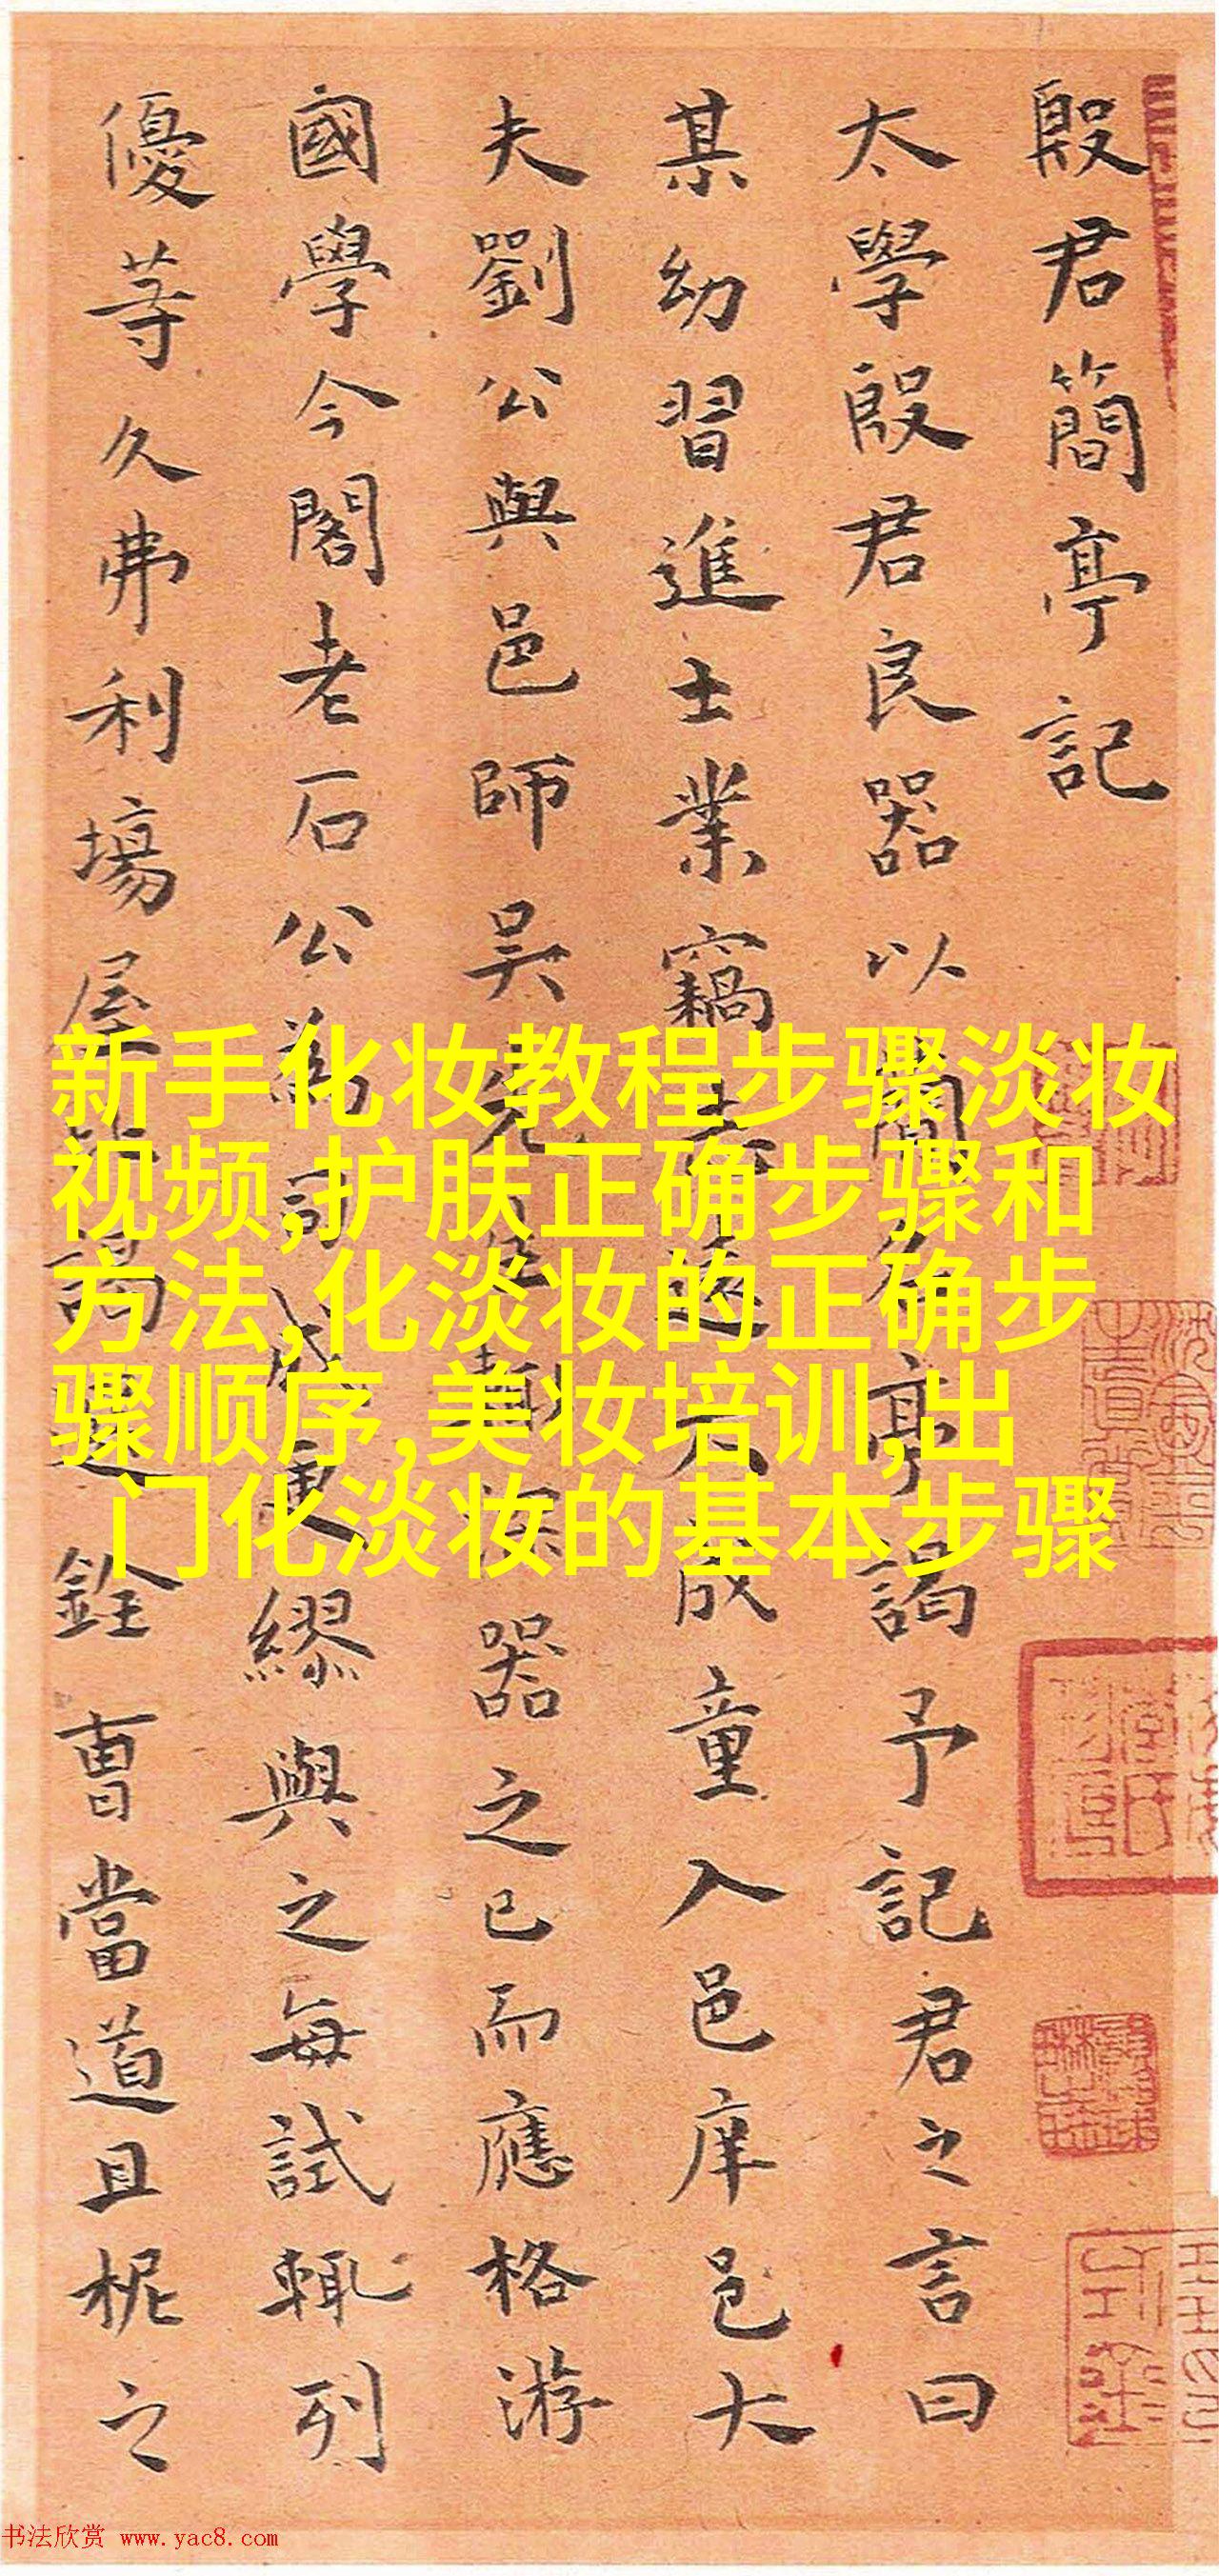 殷君簡亭記
太學殷君良器以簡名亭謁予記君之言曰
某幼習進士業竊志遠大成童入邑庠邑大
夫劉公與邑師吳先生輒深器之已而應格游
國學今閣老石公為司成更繆與之每試輒列
優等久弗利場屋謁選銓曹當道且柅之
新手化妆教程步骤淡妆
视频,护肤正确步骤和
方法,化淡妆的正确步
骤顺序,美妆培训,出
门化淡妆的基本步骤
书法欣赏 www.yac8.com